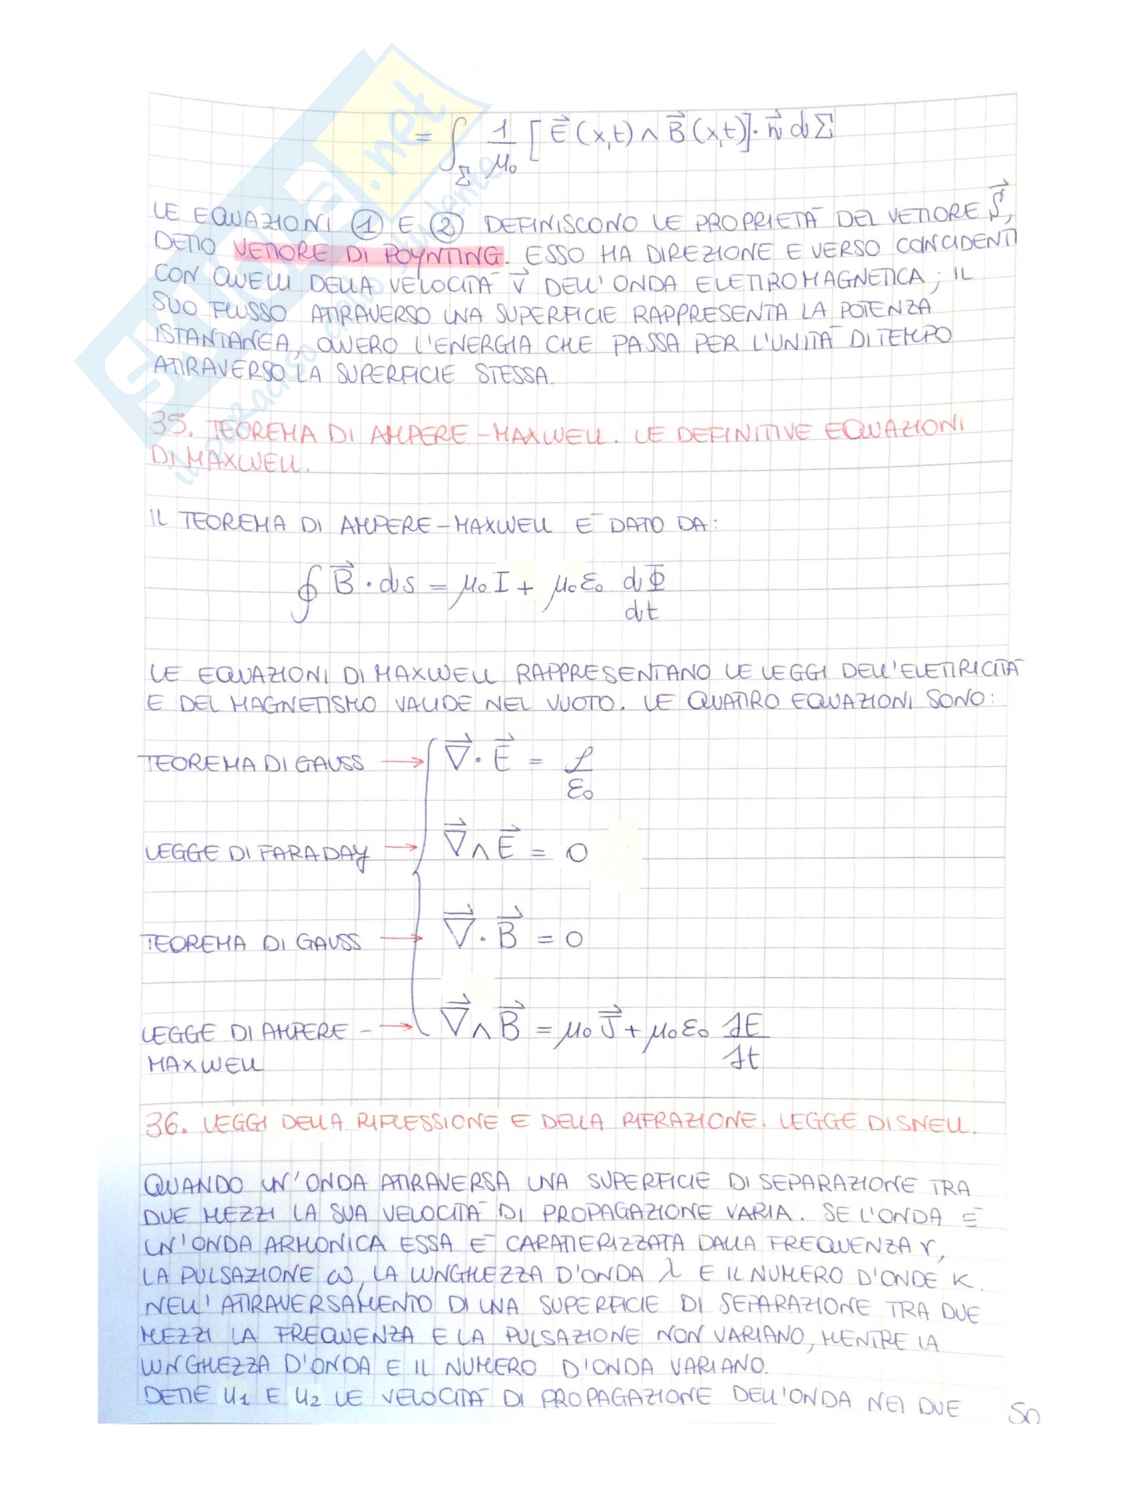 = ∫_Σ 1/μ₀ [E⃗(x,t) ∧ B⃗(x,t)]·n⃗ dΣ
LE EQUAZIONI ① E ② DEFINISCONO LE PROPRIETÀ DEL VETTORE S⃗,
DETTO VETTORE DI POYNTING. ESSO HA DIREZIONE E VERSO COINCIDENTI
CON QUELLI DELLA VELOCITÀ v⃗ DELL'ONDA ELETTROMAGNETICA; IL
SUO FLUSSO ATTRAVERSO UNA SUPERFICIE RAPPRESENTA LA POTENZA
ISTANTANEA, OVVERO L'ENERGIA CHE PASSA PER L'UNITÀ DI TEMPO
ATTRAVERSO LA SUPERFICIE STESSA.
35. TEOREMA DI AMPERE-MAXWELL. LE DEFINITIVE EQUAZIONI
DI MAXWELL.
IL TEOREMA DI AMPERE-MAXWELL È DATO DA:
∮ B⃗ · ds = μ₀ I + μ₀ε₀ dΦ/dt
LE EQUAZIONI DI MAXWELL RAPPRESENTANO LE LEGGI DELL'ELETTRICITÀ
E DEL MAGNETISMO VALIDE NEL VUOTO. LE QUATTRO EQUAZIONI SONO:
TEOREMA DI GAUSS → ∇⃗ · E⃗ = ρ/ε₀
LEGGE DI FARADAY → ∇⃗ ∧ E⃗ = 0
TEOREMA DI GAUSS → ∇⃗ · B⃗ = 0
LEGGE DI AMPERE - → ∇⃗ ∧ B⃗ = μ₀ J⃗ + μ₀ε₀ ∂E/∂t
MAXWELL
36. LEGGI DELLA RIFLESSIONE E DELLA RIFRAZIONE. LEGGE DI SNELL.
QUANDO UN'ONDA ATTRAVERSA UNA SUPERFICIE DI SEPARAZIONE TRA
DUE MEZZI LA SUA VELOCITÀ DI PROPAGAZIONE VARIA. SE L'ONDA È
UN'ONDA ARMONICA ESSA È CARATTERIZZATA DALLA FREQUENZA ν,
LA PULSAZIONE ω, LA LUNGHEZZA D'ONDA λ E IL NUMERO D'ONDE K.
NELL'ATTRAVERSAMENTO DI UNA SUPERFICIE DI SEPARAZIONE TRA DUE
MEZZI LA FREQUENZA E LA PULSAZIONE NON VARIANO, MENTRE LA
LUNGHEZZA D'ONDA E IL NUMERO D'ONDA VARIANO.
DETTE u₁ E u₂ LE VELOCITÀ DI PROPAGAZIONE DELL'ONDA NEI DUE
50